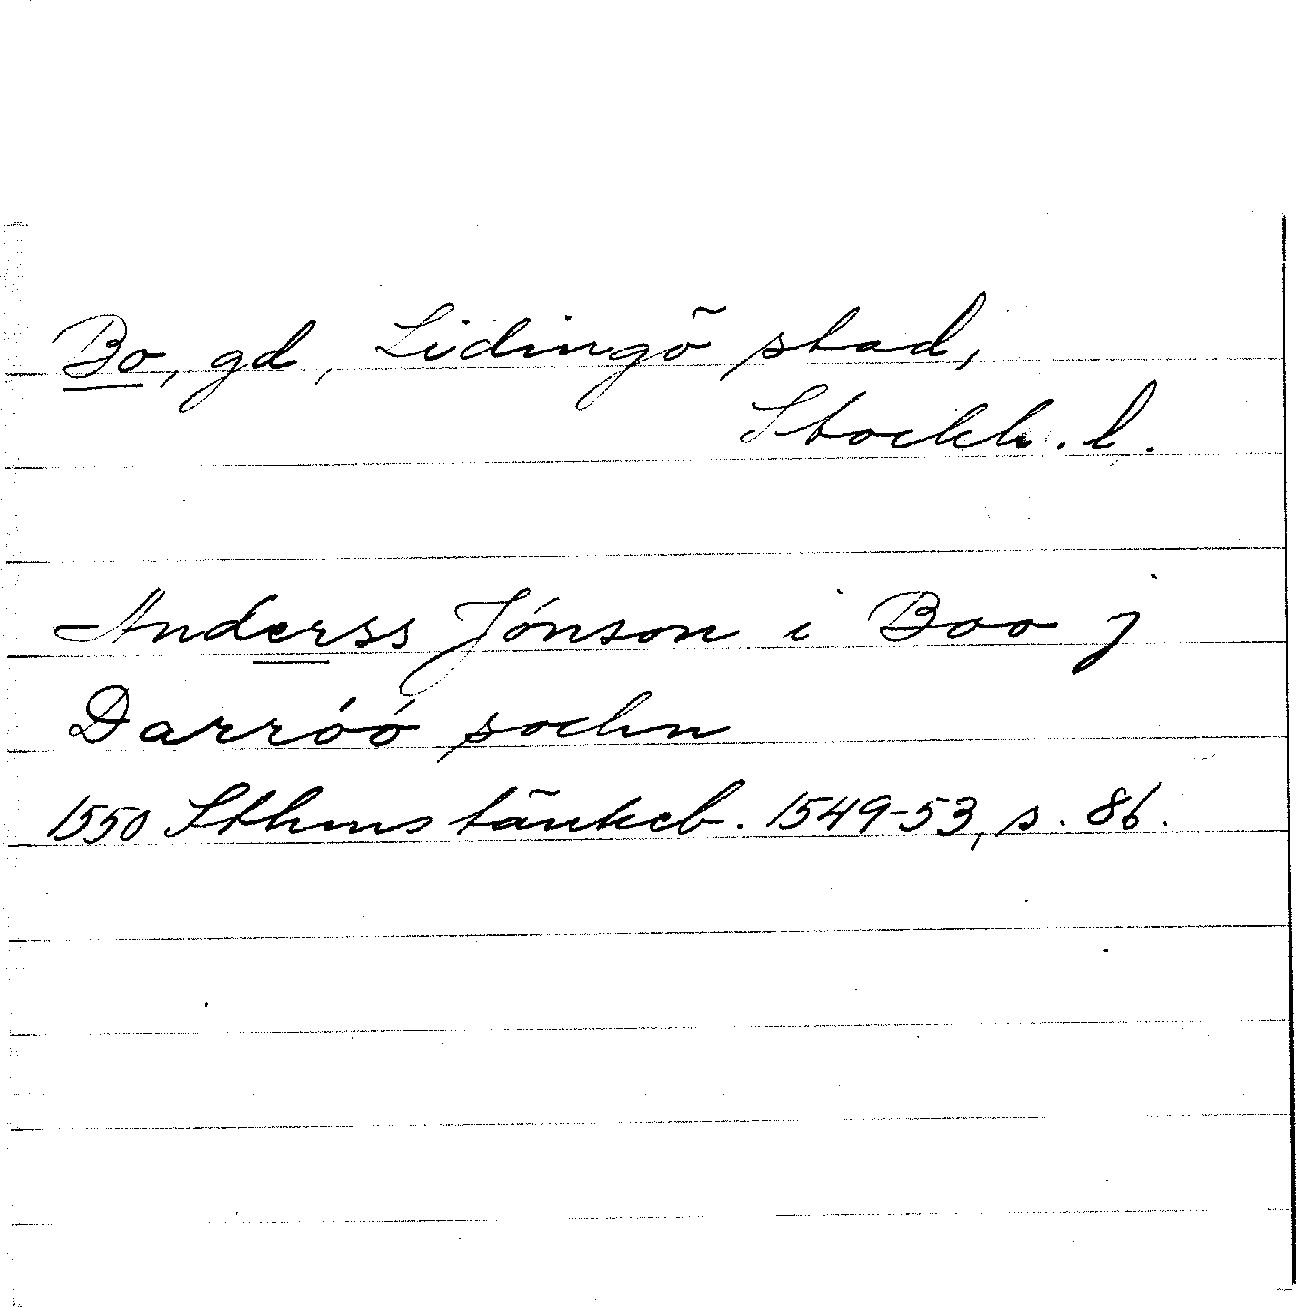 Bo, gd, Lidingö stad,
Stockh. l.
Anderss Jónson i Boo j
Darróó sochn
1550 Sthms tänkeb. 1549-53, s. 86.